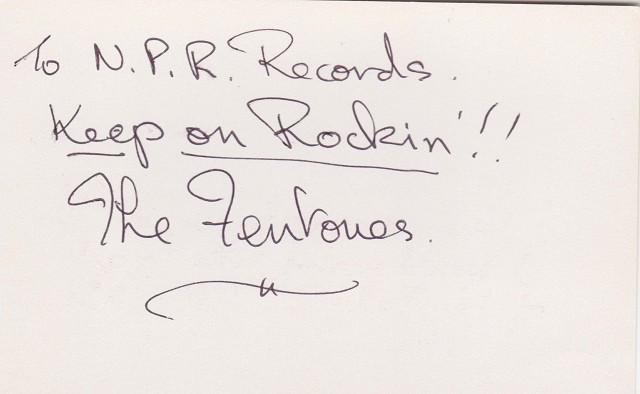 To N.P.R. Records.
Keep on Rockin'!!
The Fentones.